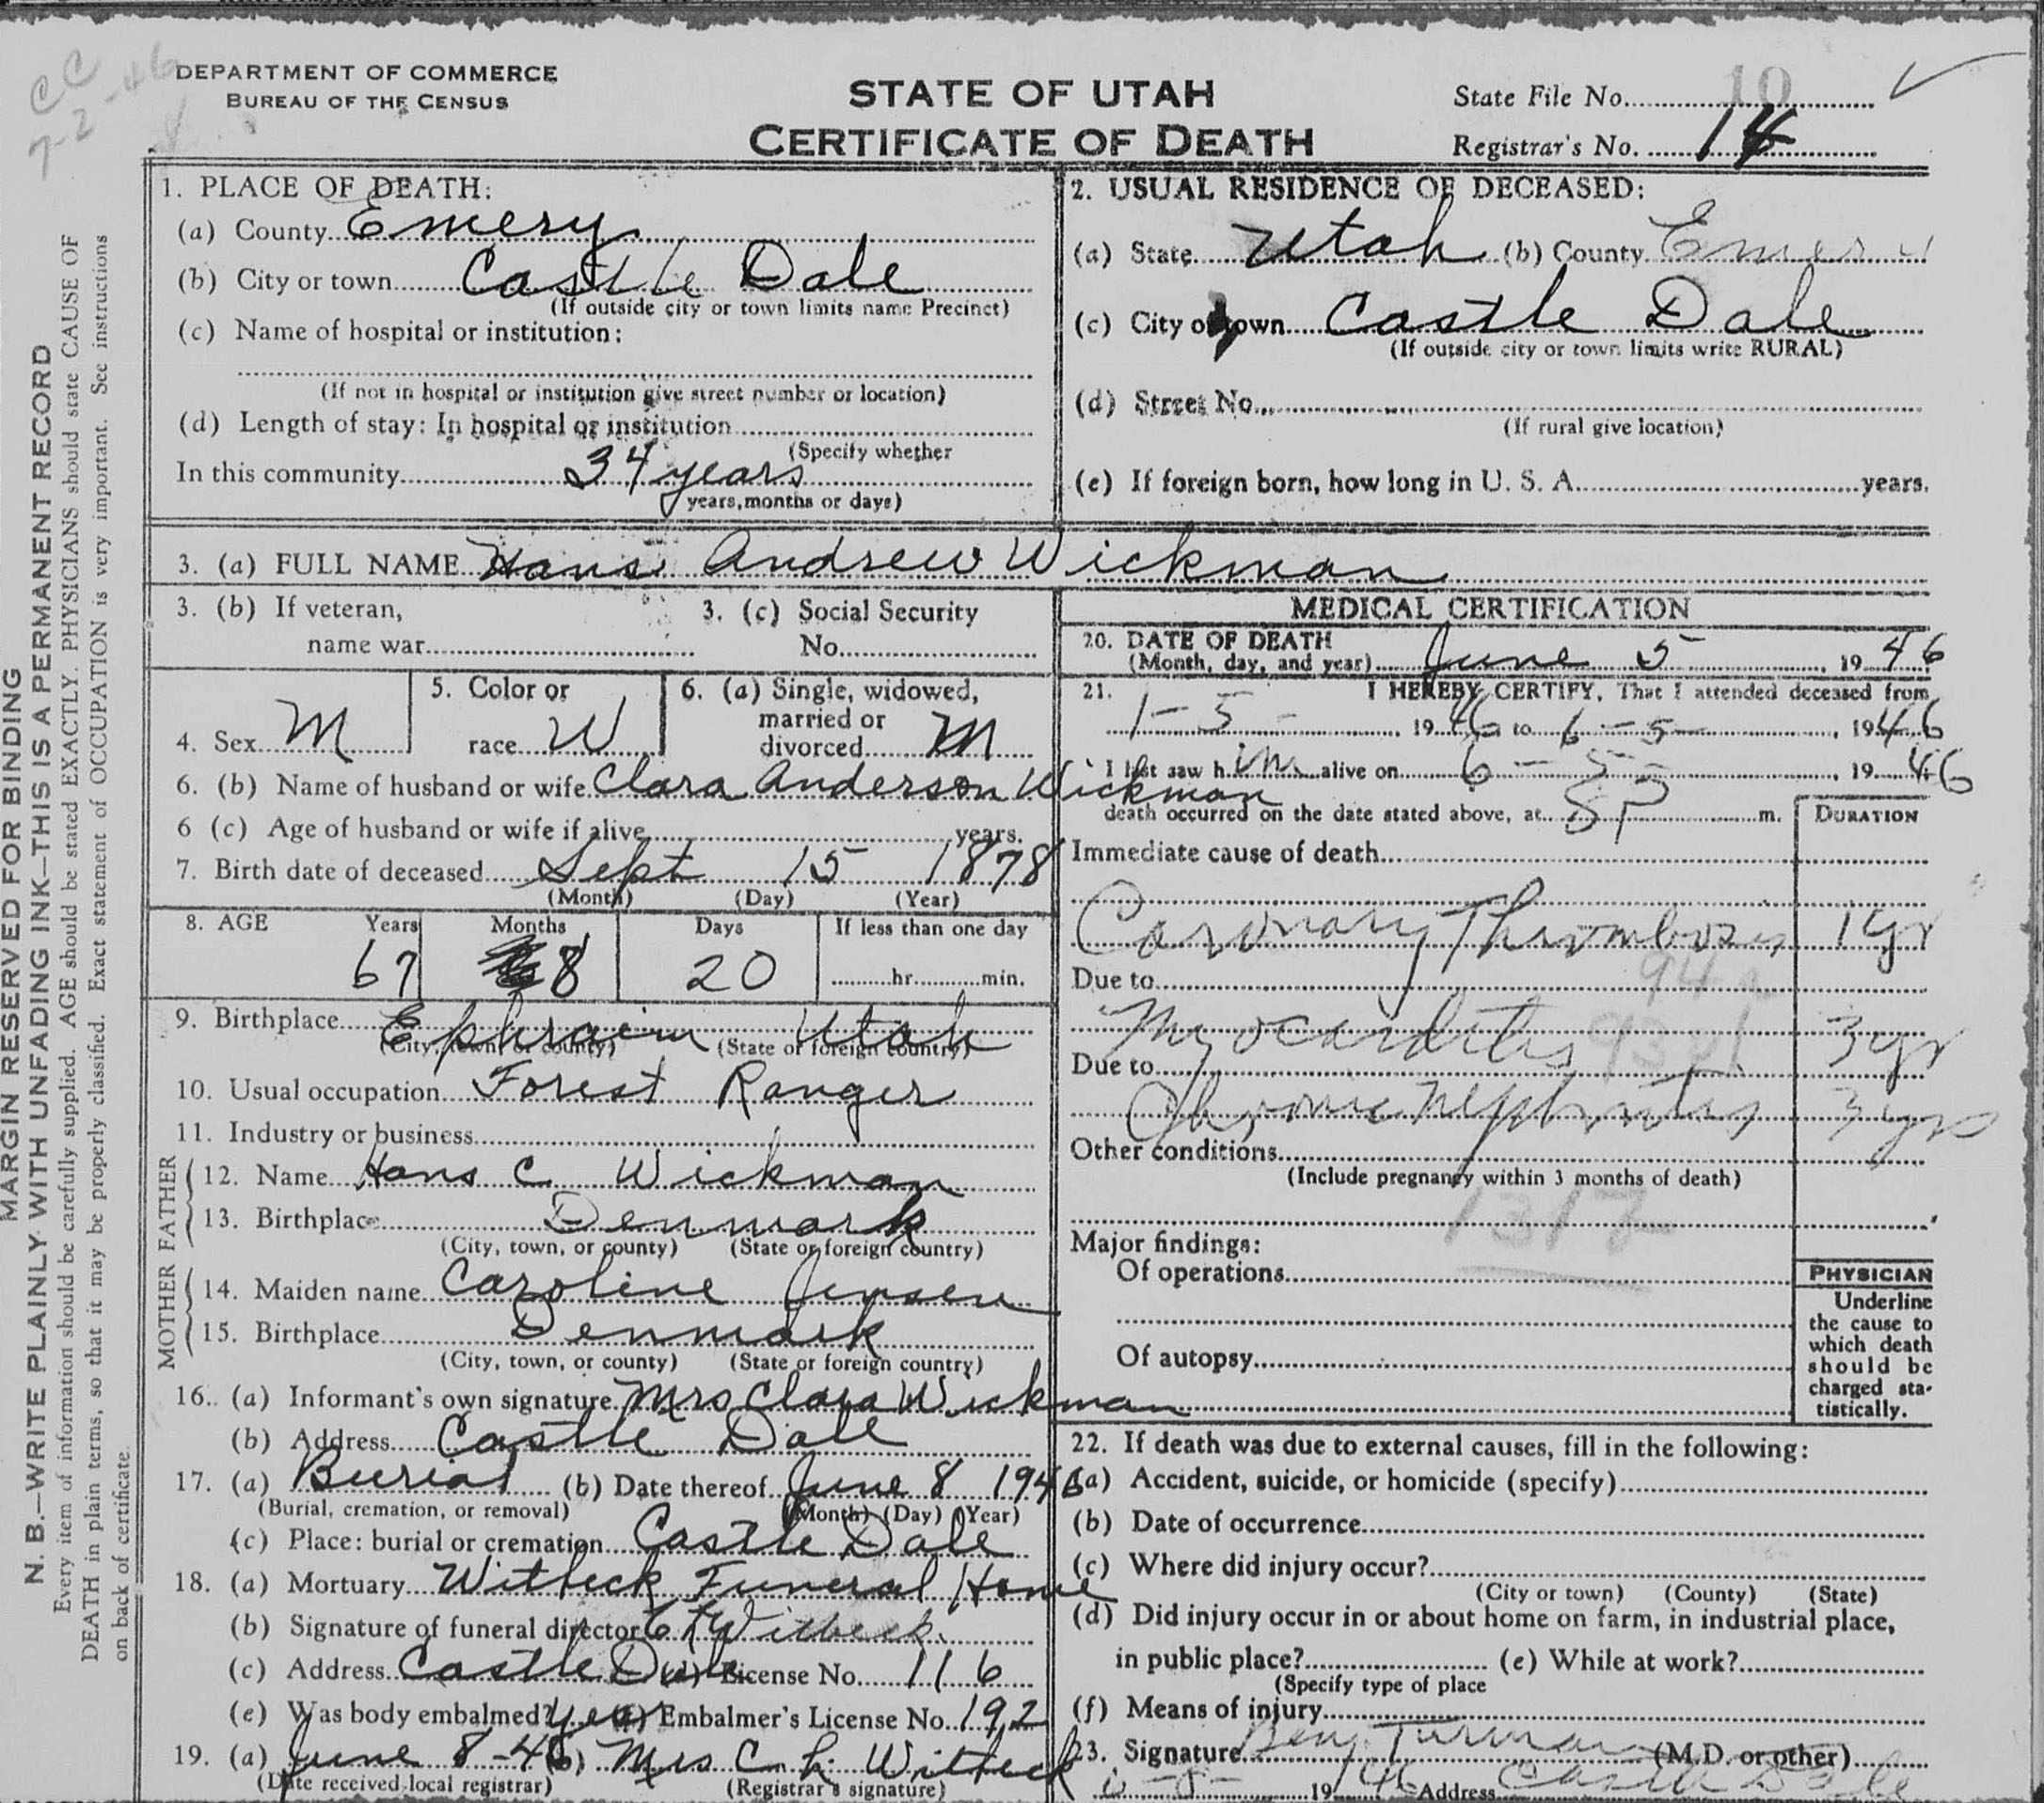 CC
7-2-46
DEPARTMENT OF COMMERCE
BUREAU OF THE CENSUS
STATE OF UTAH
CERTIFICATE OF DEATH
State File No. 10
Registrar's No. 14
MARGIN RESERVED FOR BINDING
N. B.—WRITE PLAINLY WITH UNFADING INK—THIS IS A PERMANENT RECORD
Every item of information should be carefully supplied. AGE should be stated EXACTLY. PHYSICIANS should state CAUSE OF
DEATH in plain terms, so that it may be properly classified. Exact statement of OCCUPATION is very important. See instructions
on back of certificate.
1. PLACE OF DEATH:
(a) County Emery
(b) City or town Castle Dale
(If outside city or town limits name Precinct)
(c) Name of hospital or institution:
(If not in hospital or institution give street number or location)
(d) Length of stay: In hospital or institution
(Specify whether
In this community 34 years
years, months or days)
2. USUAL RESIDENCE OF DECEASED:
(a) State Utah (b) County Emery
(c) City or town Castle Dale
(If outside city or town limits write RURAL)
(d) Street No.
(If rural give location)
(e) If foreign born, how long in U. S. A. years.
3. (a) FULL NAME Hans Andrew Wickman
3. (b) If veteran,
name war
3. (c) Social Security
No.
4. Sex M
5. Color or
race W
6. (a) Single, widowed,
married or
divorced M
6. (b) Name of husband or wife Clara Anderson Wickman
6 (c) Age of husband or wife if alive years.
7. Birth date of deceased Sept 15 1878
(Month) (Day) (Year)
8. AGE Years Months Days If less than one day
67 8 20 hr. min.
9. Birthplace Ephraim Utah
(City, town, or county) (State or foreign country)
10. Usual occupation Forest Ranger
11. Industry or business
FATHER
12. Name Hans C. Wickman
13. Birthplace Denmark
(City, town, or county) (State or foreign country)
MOTHER
14. Maiden name Caroline Jensen
15. Birthplace Denmark
(City, town, or county) (State or foreign country)
16. (a) Informant's own signature Mrs Clara Wickman
(b) Address Castle Dale
17. (a) Burial (b) Date thereof June 8 1946
(Burial, cremation, or removal) (Month) (Day) (Year)
(c) Place: burial or cremation Castle Dale
18. (a) Mortuary Witbeck Funeral Home
(b) Signature of funeral director Witbeck
(c) Address Castle Dale (d) License No. 116
(e) Was body embalmed? yes (f) Embalmer's License No. 192
19. (a) June 8-46 (b) Mrs C. L. Witbeck
(Date received local registrar) (Registrar's signature)
MEDICAL CERTIFICATION
20. DATE OF DEATH
(Month, day, and year) June 5, 1946
21. I HEREBY CERTIFY, That I attended deceased from
1-5-, 1946 to 6-5-, 1946
I last saw him alive on 6-5-, 1946
death occurred on the date stated above, at P m.
DURATION
Immediate cause of death
Coronary Thrombosis 1 yr
94a
Due to
Myocarditis 3 yr
93d
Due to
Chronic Nephritis 3 yrs
Other conditions
(Include pregnancy within 3 months of death)
1312
Major findings:
Of operations
Of autopsy
PHYSICIAN
Underline
the cause to
which death
should be
charged sta-
tistically.
22. If death was due to external causes, fill in the following:
(a) Accident, suicide, or homicide (specify)
(b) Date of occurrence
(c) Where did injury occur?
(City or town) (County) (State)
(d) Did injury occur in or about home on farm, in industrial place,
in public place? (e) While at work?
(Specify type of place
(f) Means of injury
23. Signature Turman (M.D. or other)
1946 Address Castle Dale